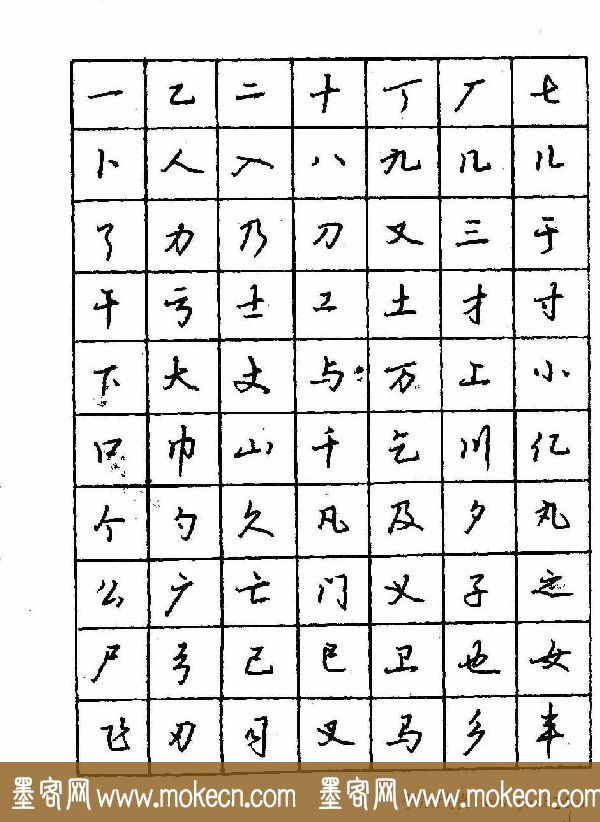 一乙二十丁厂七
卜人入八九几儿
了力乃刀又三于
干亏士工土才寸
下大丈与万上小
口巾山千乞川亿
个勺久凡及夕丸
么广亡门义子之
尸弓己巳卫也女
飞刃习叉马乡丰
墨客网 www.mokecn.com 墨客网 www.mokecn.com